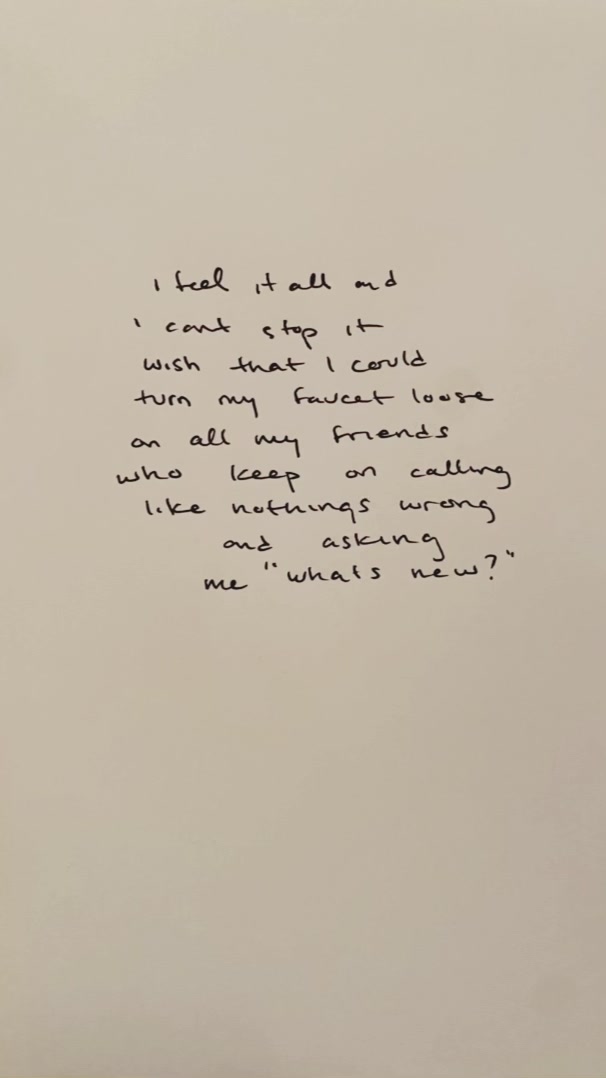 I feel it all and
I cant stop it
wish that I could
turn my faucet loose
on all my friends
who keep on calling
like nothings wrong
and asking
me "whats new?"